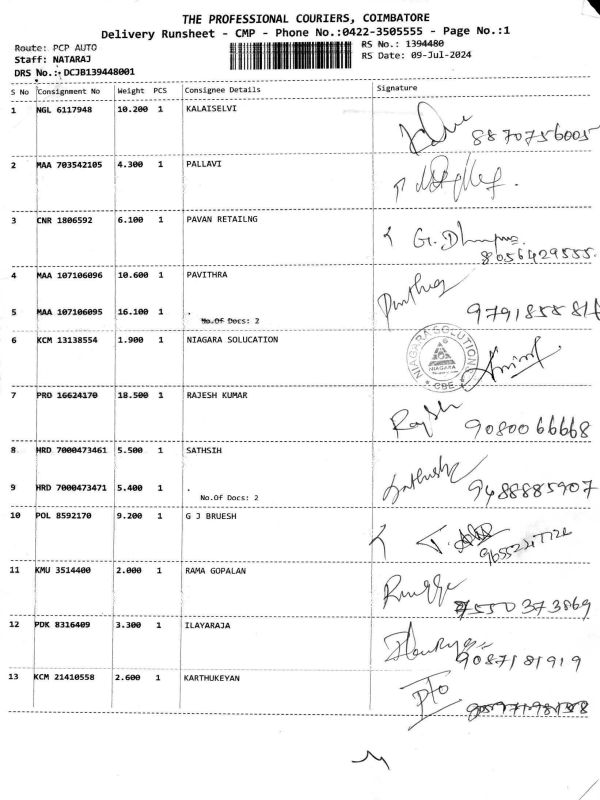 THE PROFESSIONAL COURIERS, COIMBATORE
Delivery Runsheet - CMP - Phone No.:0422-3505555 - Page No.:1
Route: PCP AUTO
RS No.: 1394480
Staff: NATARAJ
RS Date: 09-Jul-2024
DRS No.: DCJB139448001
S No Consignment No Weight PCS Consignee Details Signature
1 NGL 6117948 10.200 1 KALAISELVI
8870756005
2 MAA 703542105 4.300 1 PALLAVI
3 CNR 1806592 6.100 1 PAVAN RETAILNG
8056429555.
4 MAA 107106096 10.600 1 PAVITHRA
5 MAA 107106095 16.100 1 .
No.Of Docs: 2
6 KCM 13138554 1.900 1 NIAGARA SOLUCATION
NIAGARA SOLUTIONS
NIAGARA
* CBE *
7 PRO 16624170 18.500 1 RAJESH KUMAR
9080066668
8 HRD 7000473461 5.500 1 SATHSIH
9488885907
9 HRD 7000473471 5.400 1 .
No.Of Docs: 2
10 POL 8592170 9.200 1 G J BRUESH
11 KMU 3514400 2.000 1 RAMA GOPALAN
7550373869
12 PDK 8316409 3.300 1 ILAYARAJA
9087181919
13 KCM 21410558 2.600 1 KARTHUKEYAN